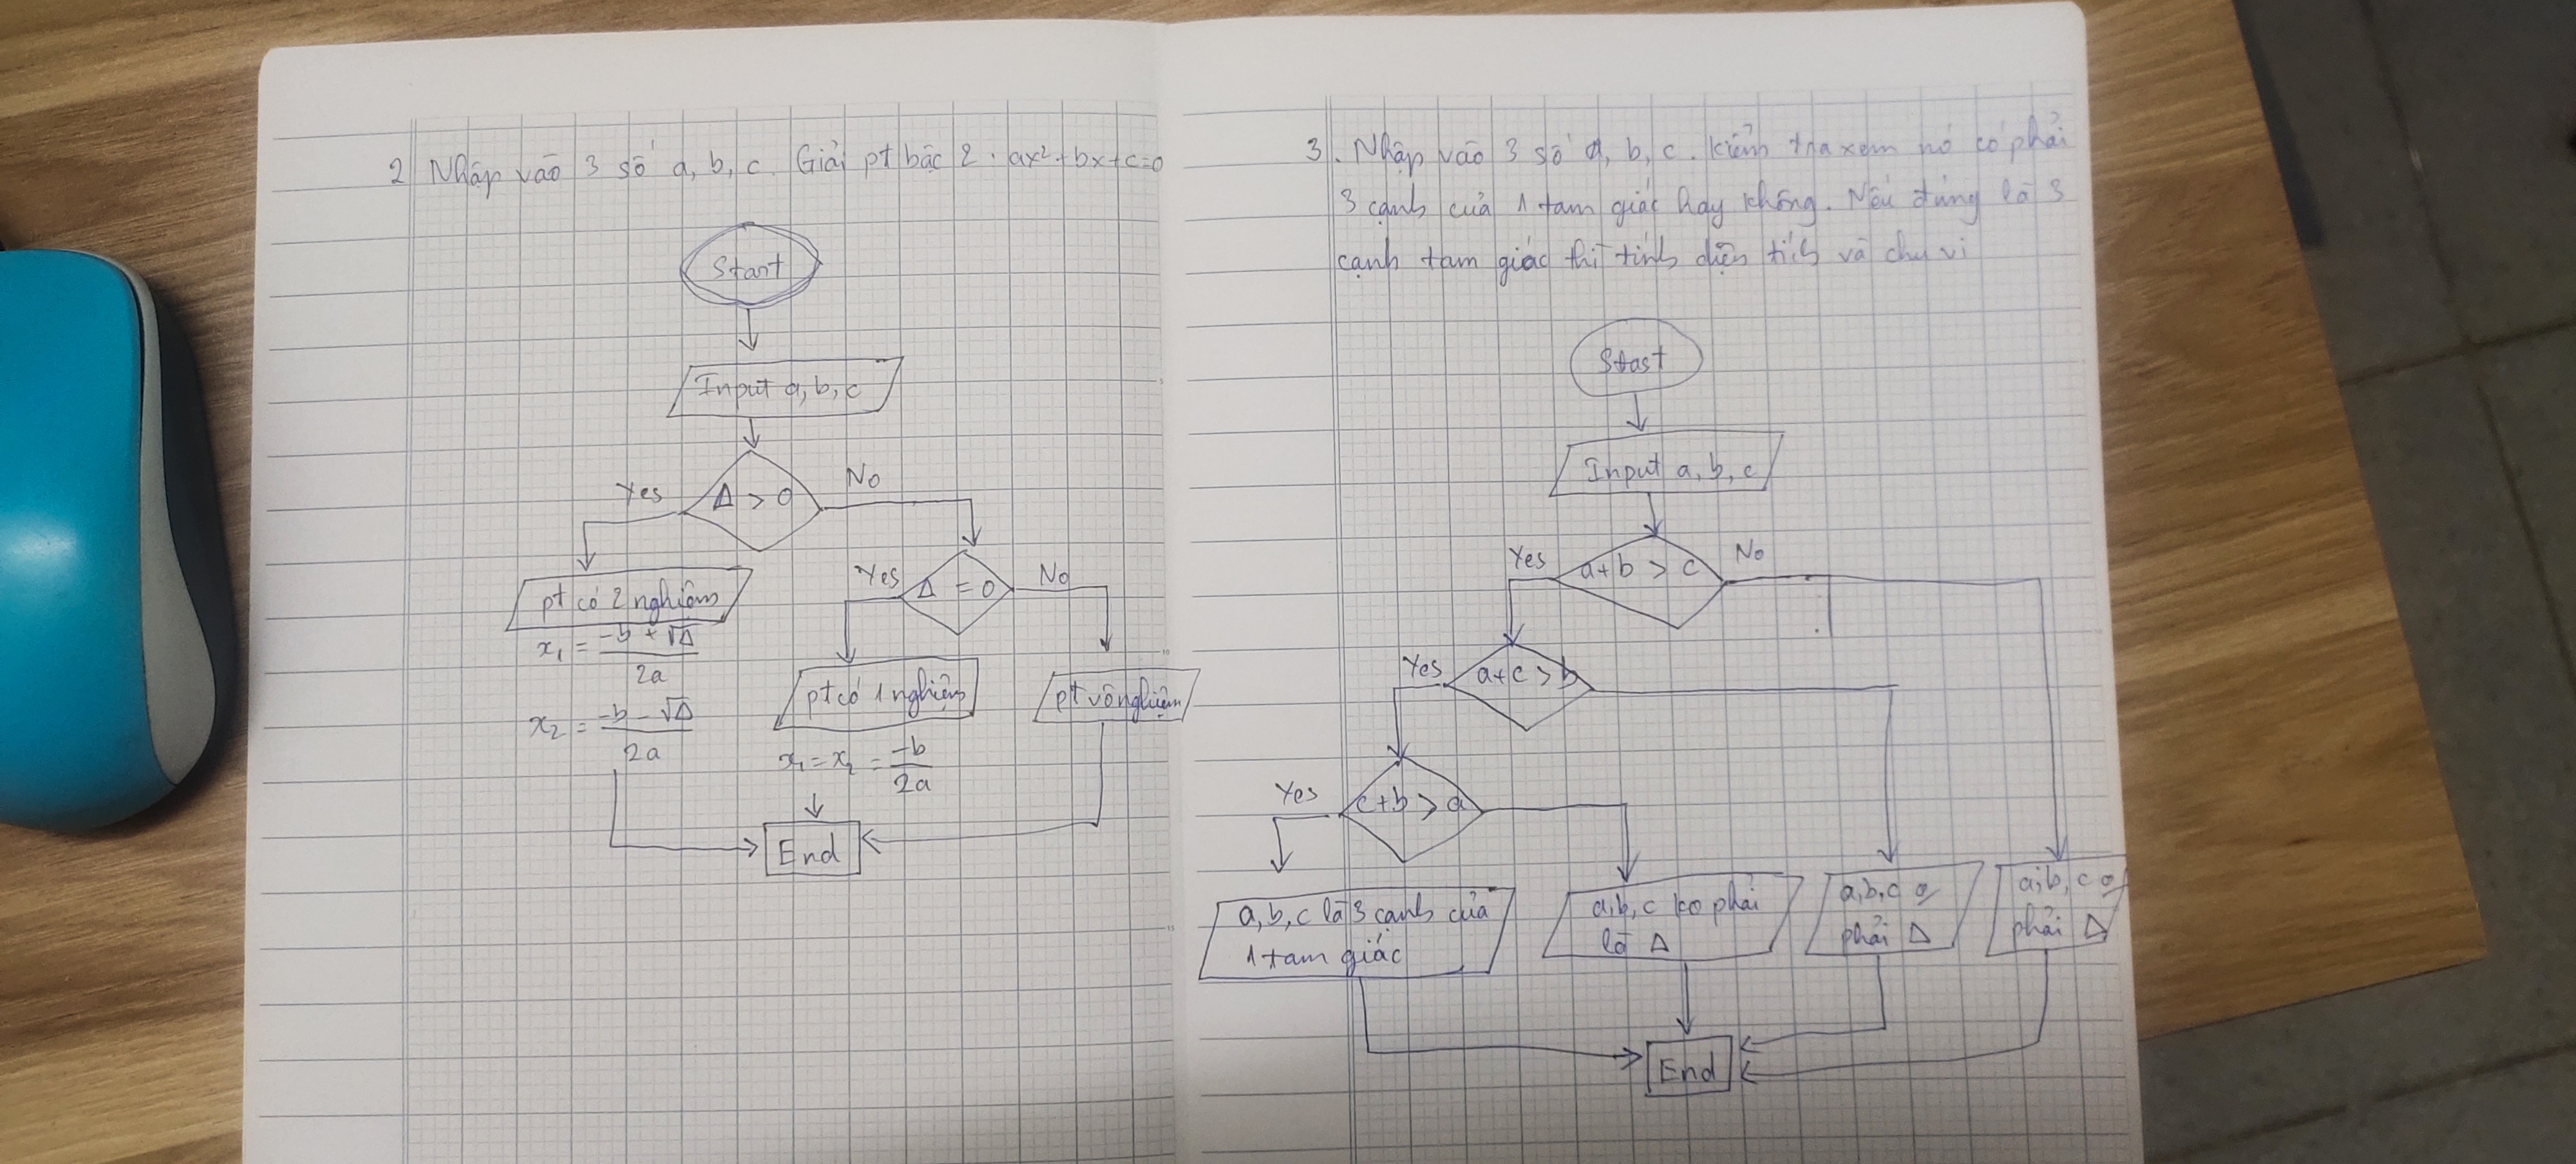 2 Nhập vào 3 số a, b, c. Giải pt bậc 2: ax²+bx+c=0
Start
Input a, b, c
Yes
Δ > 0
No
pt có 2 nghiệm
x₁ = (-b + √Δ)/2a
x₂ = (-b - √Δ)/2a
Yes
Δ = 0
No
pt có 1 nghiệm
x₁ = x₂ = -b/2a
pt vô nghiệm
End
3. Nhập vào 3 số a, b, c. kiểm tra xem nó có phải
3 cạnh của 1 tam giác hay không. Nếu đúng là 3
cạnh tam giác thì tính diện tích và chu vi
Start
Input a, b, c
Yes
a+b > c
No
Yes
a+c > b
Yes
c+b > a
a, b, c là 3 cạnh của
1 tam giác
a, b, c ko phải
là Δ
a, b, c
phải Δ
a, b, c
phải Δ
End